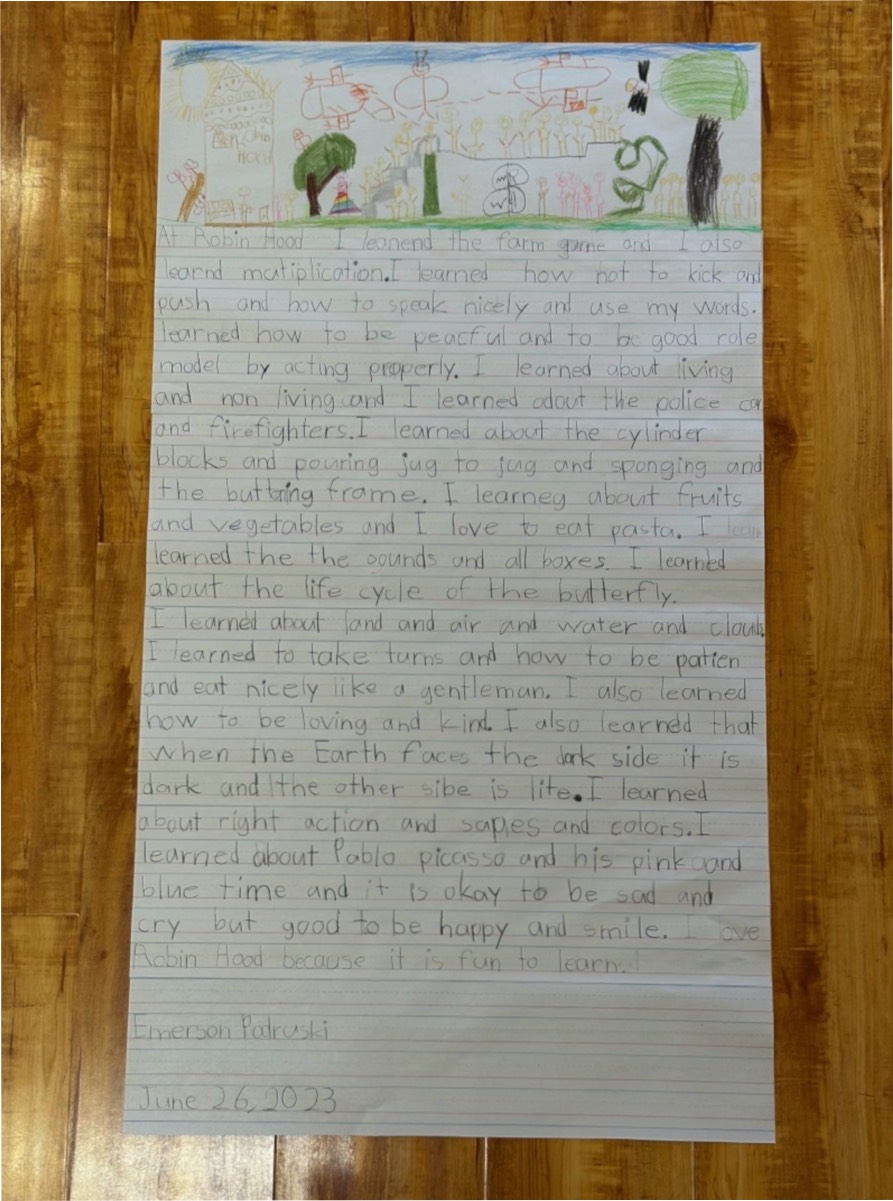 Robin
Hood
At Robin Hood I leanend the farm game and I also
learnd mutiplication.I learned how not to kick and
push and how to speak nicely and use my words.
learned how to be peacful and to be good role
model by acting properly. I learned about living
and non living and I learned adout the police ca
and firefighters.I learned about the cylinder
blocks and pouring jug to jug and sponging and
the buttoning frame. I learney about fruits
and vegetables and I love to eat pasta. I lean
learned the the sounds and all boxes. I learned
about the life cycle of the butterfly.
I learned about land and air and water and clouds
I learned to take turns and how to be patien
and eat nicely like a gentleman. I also learned
how to be loving and kind. I also learned that
when the Earth faces the dark side it is
dark and the other sibe is lite.I learned
about right action and sapes and colors.I
learned about Pablo picasso and his pink and
blue time and it is okay to be sad and
cry but good to be happy and smile. I ove
Robin Hood because it is fun to learn.
Emerson Podruski
June 26, 2023